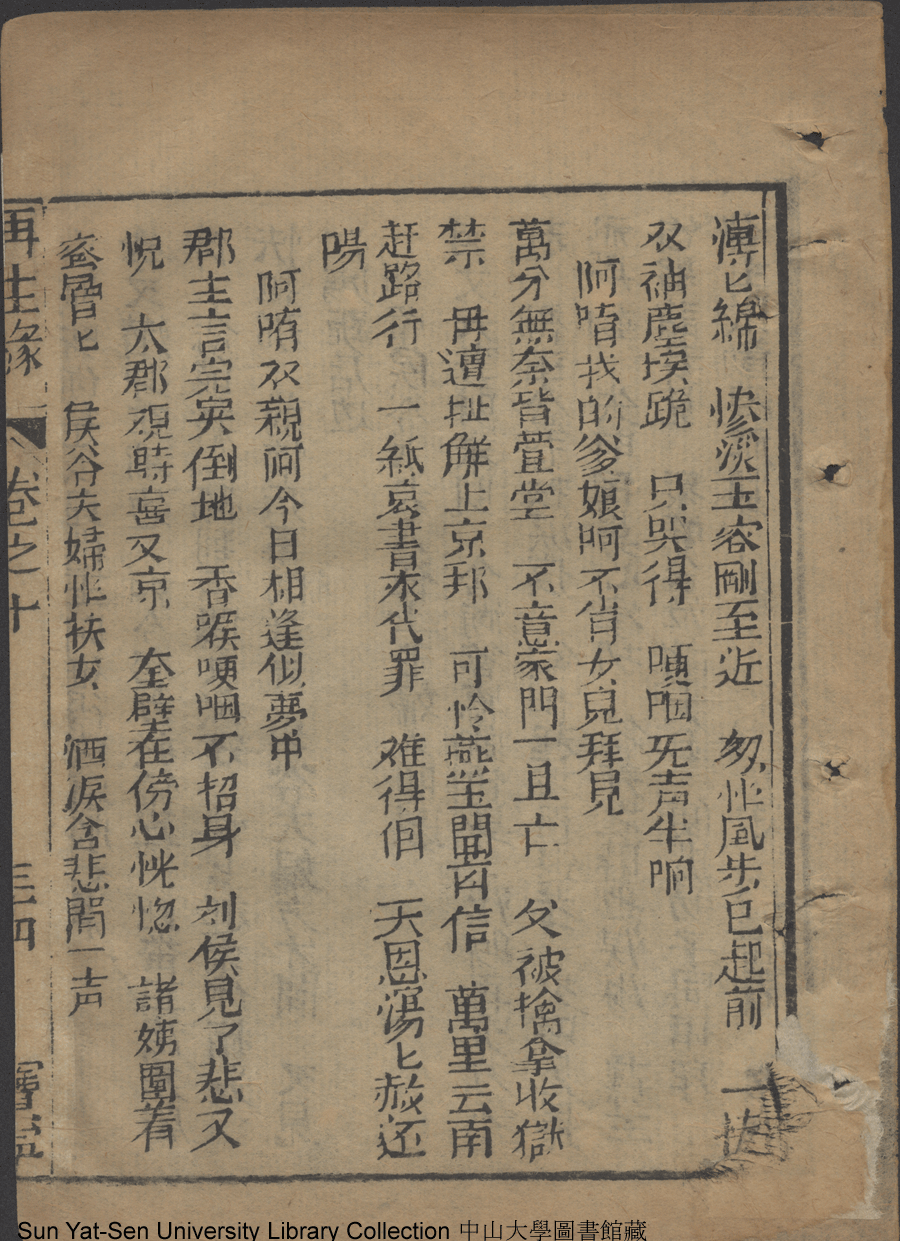 漙匕綿 惨淡玉容剛至近 匆忙風步已起前 一
双袖塵埃跪 只哭得 哽咽旡声半晌
阿唷我的爹娘阿不肖女兒拜見
萬分無奈背萱堂 不意家門一旦亡 父被擒拿收獄
禁 毋遭扯觧上京邦 可怜燕玉聞肓信 萬里云南
赶路行 一紙哀書求代罪 难得佪 天恩蕩匕赦还
陽
阿唷双親阿今日相逢似夢中
郡主言完哭倒地 香喉哽咽不招身 刘侯見了悲又
恱 太郡視時喜又京 奎璧在傍心恍惚 諸姨圍着
宻層匕 侯谷夫婦忙扶女 洒淚含悲問一声
再生縁 卷之十 三四 寶
Sun Yat-Sen University Library Collection 中山大學圖書館藏